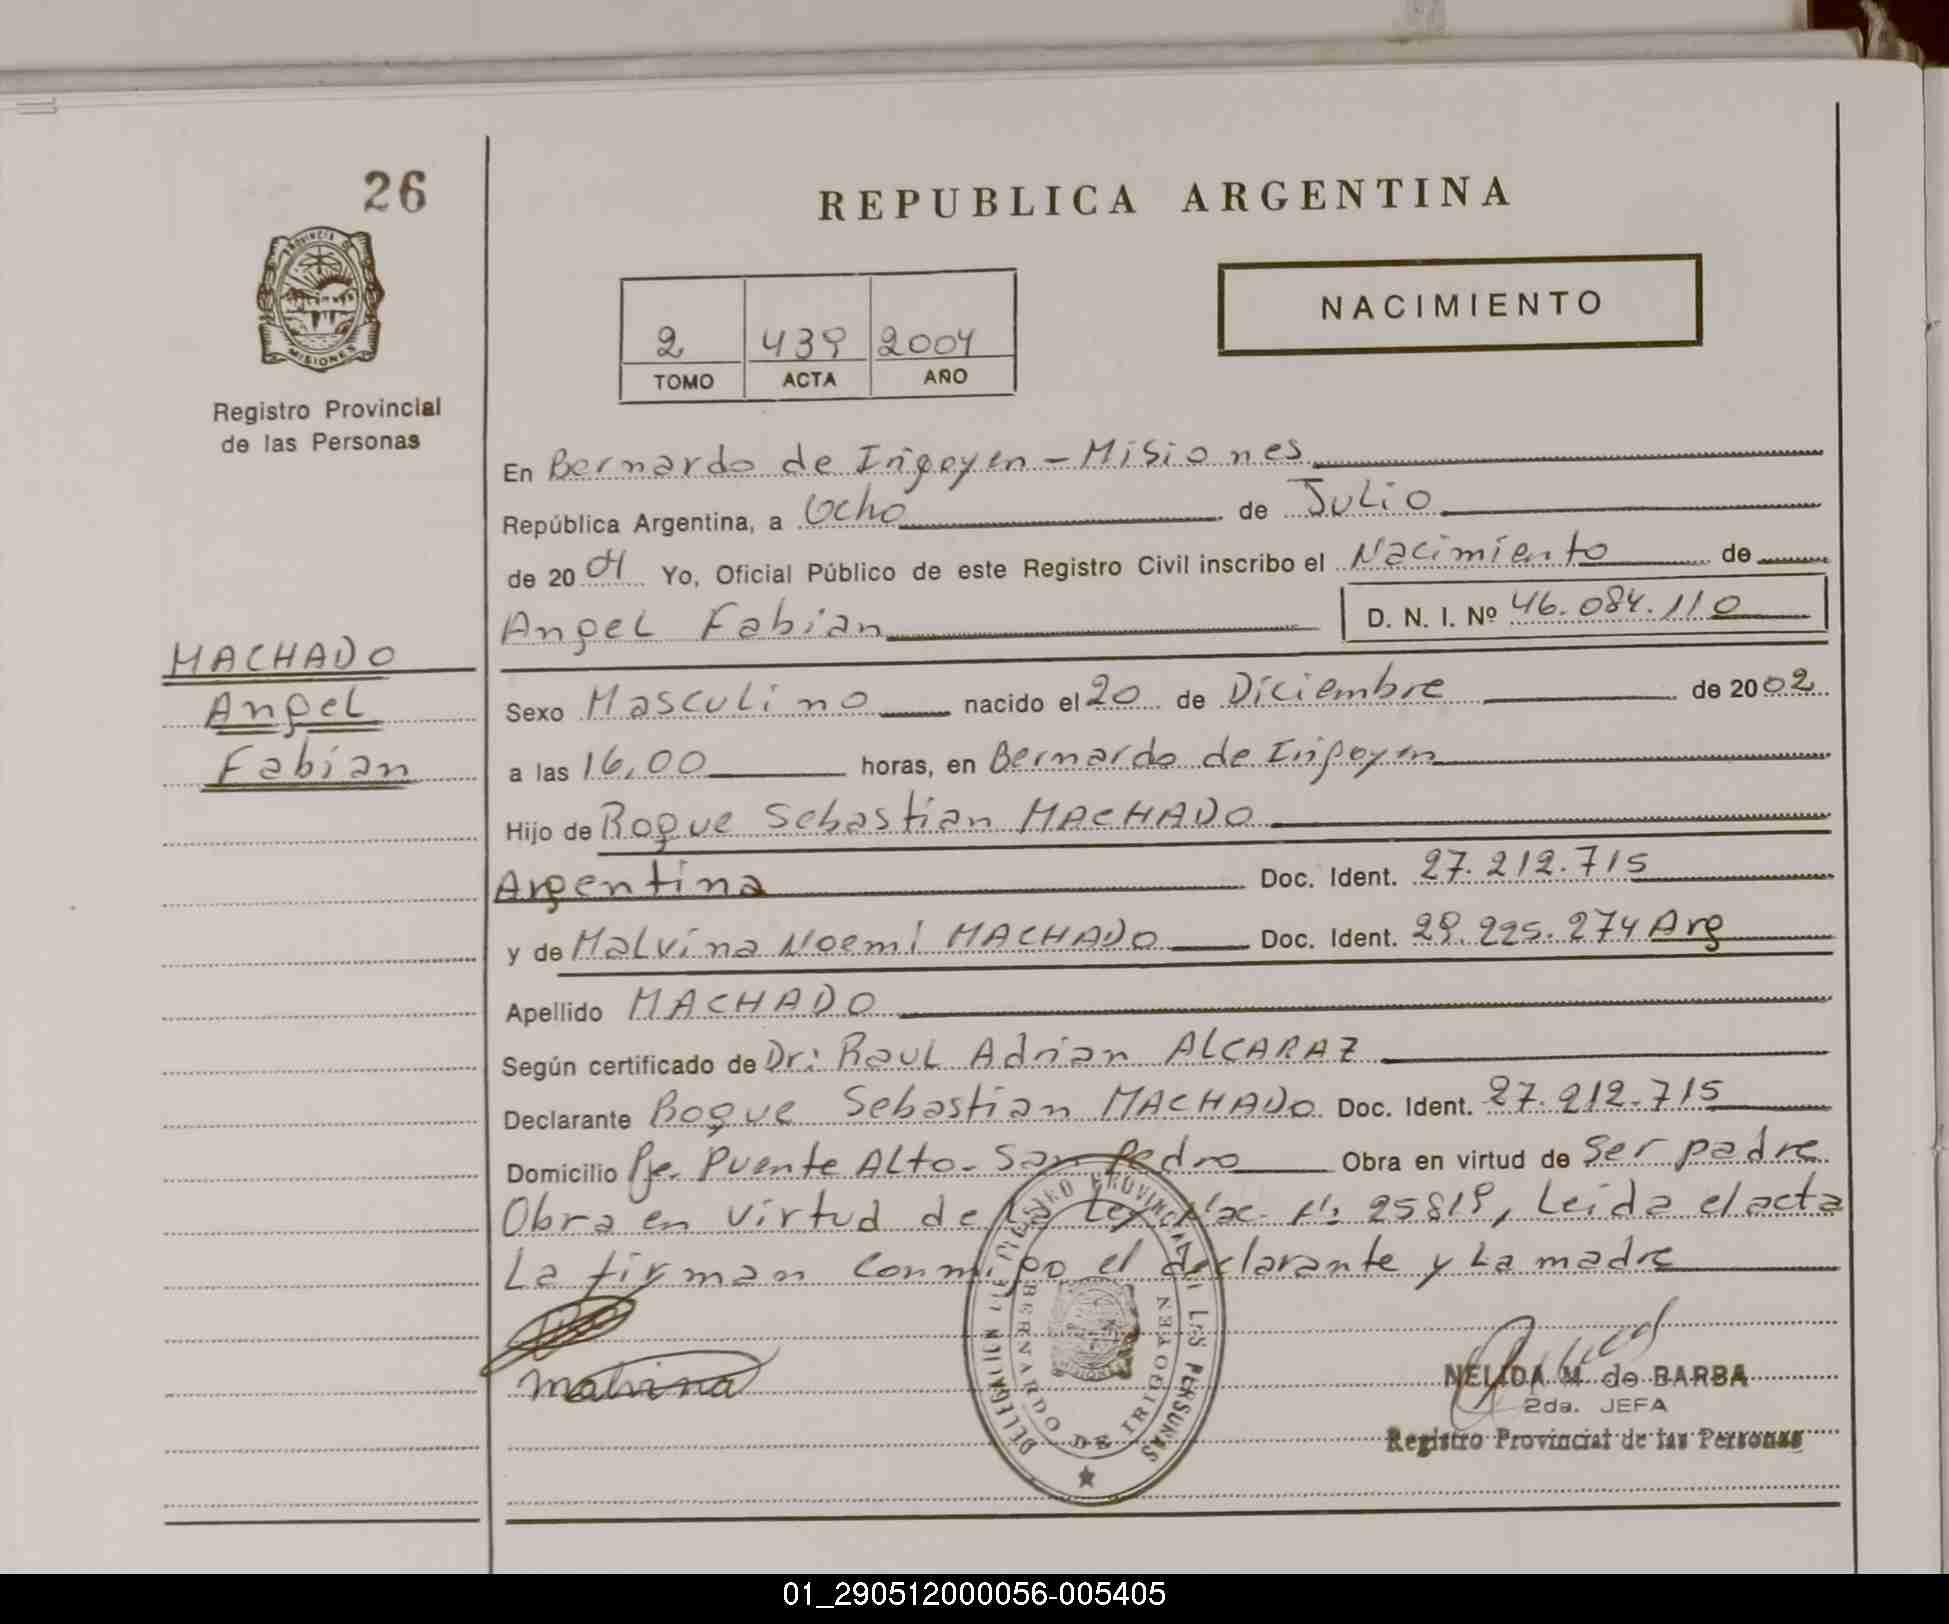 26
PROVINCIA DE
MISIONES
Registro Provincial
de las Personas
MACHADO
Angel
Fabian
REPUBLICA ARGENTINA
NACIMIENTO
2 439 2004
TOMO ACTA AÑO
En Bernardo de Irigoyen - Misiones
República Argentina, a Ocho de Julio
de 2004 Yo, Oficial Público de este Registro Civil inscribo el Nacimiento de
Angel Fabian D. N. I. Nº 46.084.110
Sexo Masculino nacido el 20 de Diciembre de 2002
a las 16,00 horas, en Bernardo de Irigoyen
Hijo de Roque Sebastian MACHADO
Argentina Doc. Ident. 27.212.715
y de Malvina Noemi MACHADO Doc. Ident. 29.225.274 Arg
Apellido MACHADO
Según certificado de Dr: Raul Adrian ALCARAZ
Declarante Roque Sebastian MACHADO Doc. Ident. 27.212.715
Domicilio Pje. Puente Alto - San Pedro Obra en virtud de ser padre
Obra en virtud de la Ley Nac. Nº 25819, Leida el acta
La firman conmigo el declarante y La madre
malvina
DELEGACION DEL REGISTRO PROVINCIAL DE LAS PERSONAS
BERNARDO DE IRIGOYEN
NELIDA M. de BARBA
2da. JEFA
Registro Provincial de las Personas
01_290512000056-005405